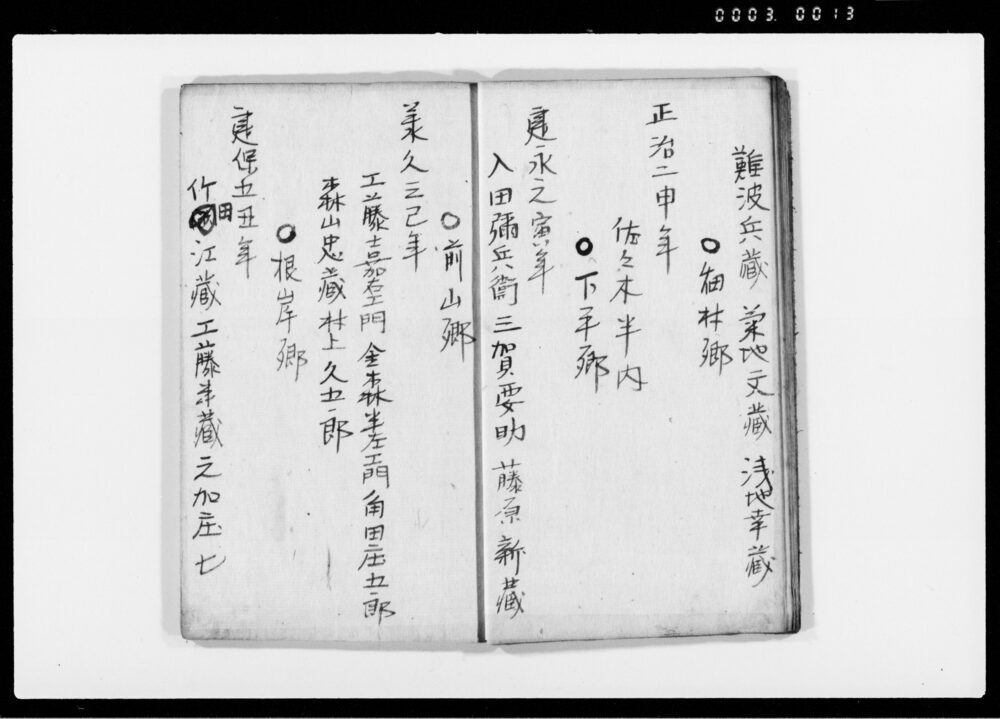 0003.0013
難波兵藏 菊地文藏 浅地幸藏
○ 細林郷
正治二申年
佐々木半内
○ 下平郷
建永元寅年
入田彌兵衛 三賀要助 藤原新藏
○ 前山郷
美久三己年
工藤嘉右エ門 金森半左エ門 角田庄五郎
森山忠藏 村上久五郎
○ 根岸郷
建保五丑年
竹田江藏 工藤半藏 元加庄七